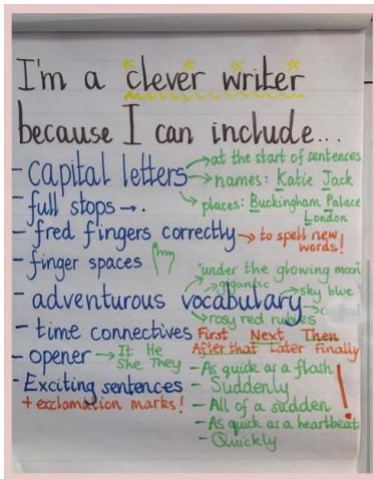 I'm a clever writer
because I can include...
- capital letters → at the start of sentences
→ names: Katie Jack
→ places: Buckingham Palace
London
- full stops → .
- fred fingers correctly → to spell new
words!
- finger spaces
"under the glowing moon
gigantic
sky blue
- adventurous vocabulary
rosy red rubies
- time connectives First Next Then
After that Later Finally
- opener → It He
She They
- Exciting sentences
+ exclamation marks!
- As quick as a flash
- Suddenly
- All of a sudden
- As quick as a heartbeat
- Quickly
!